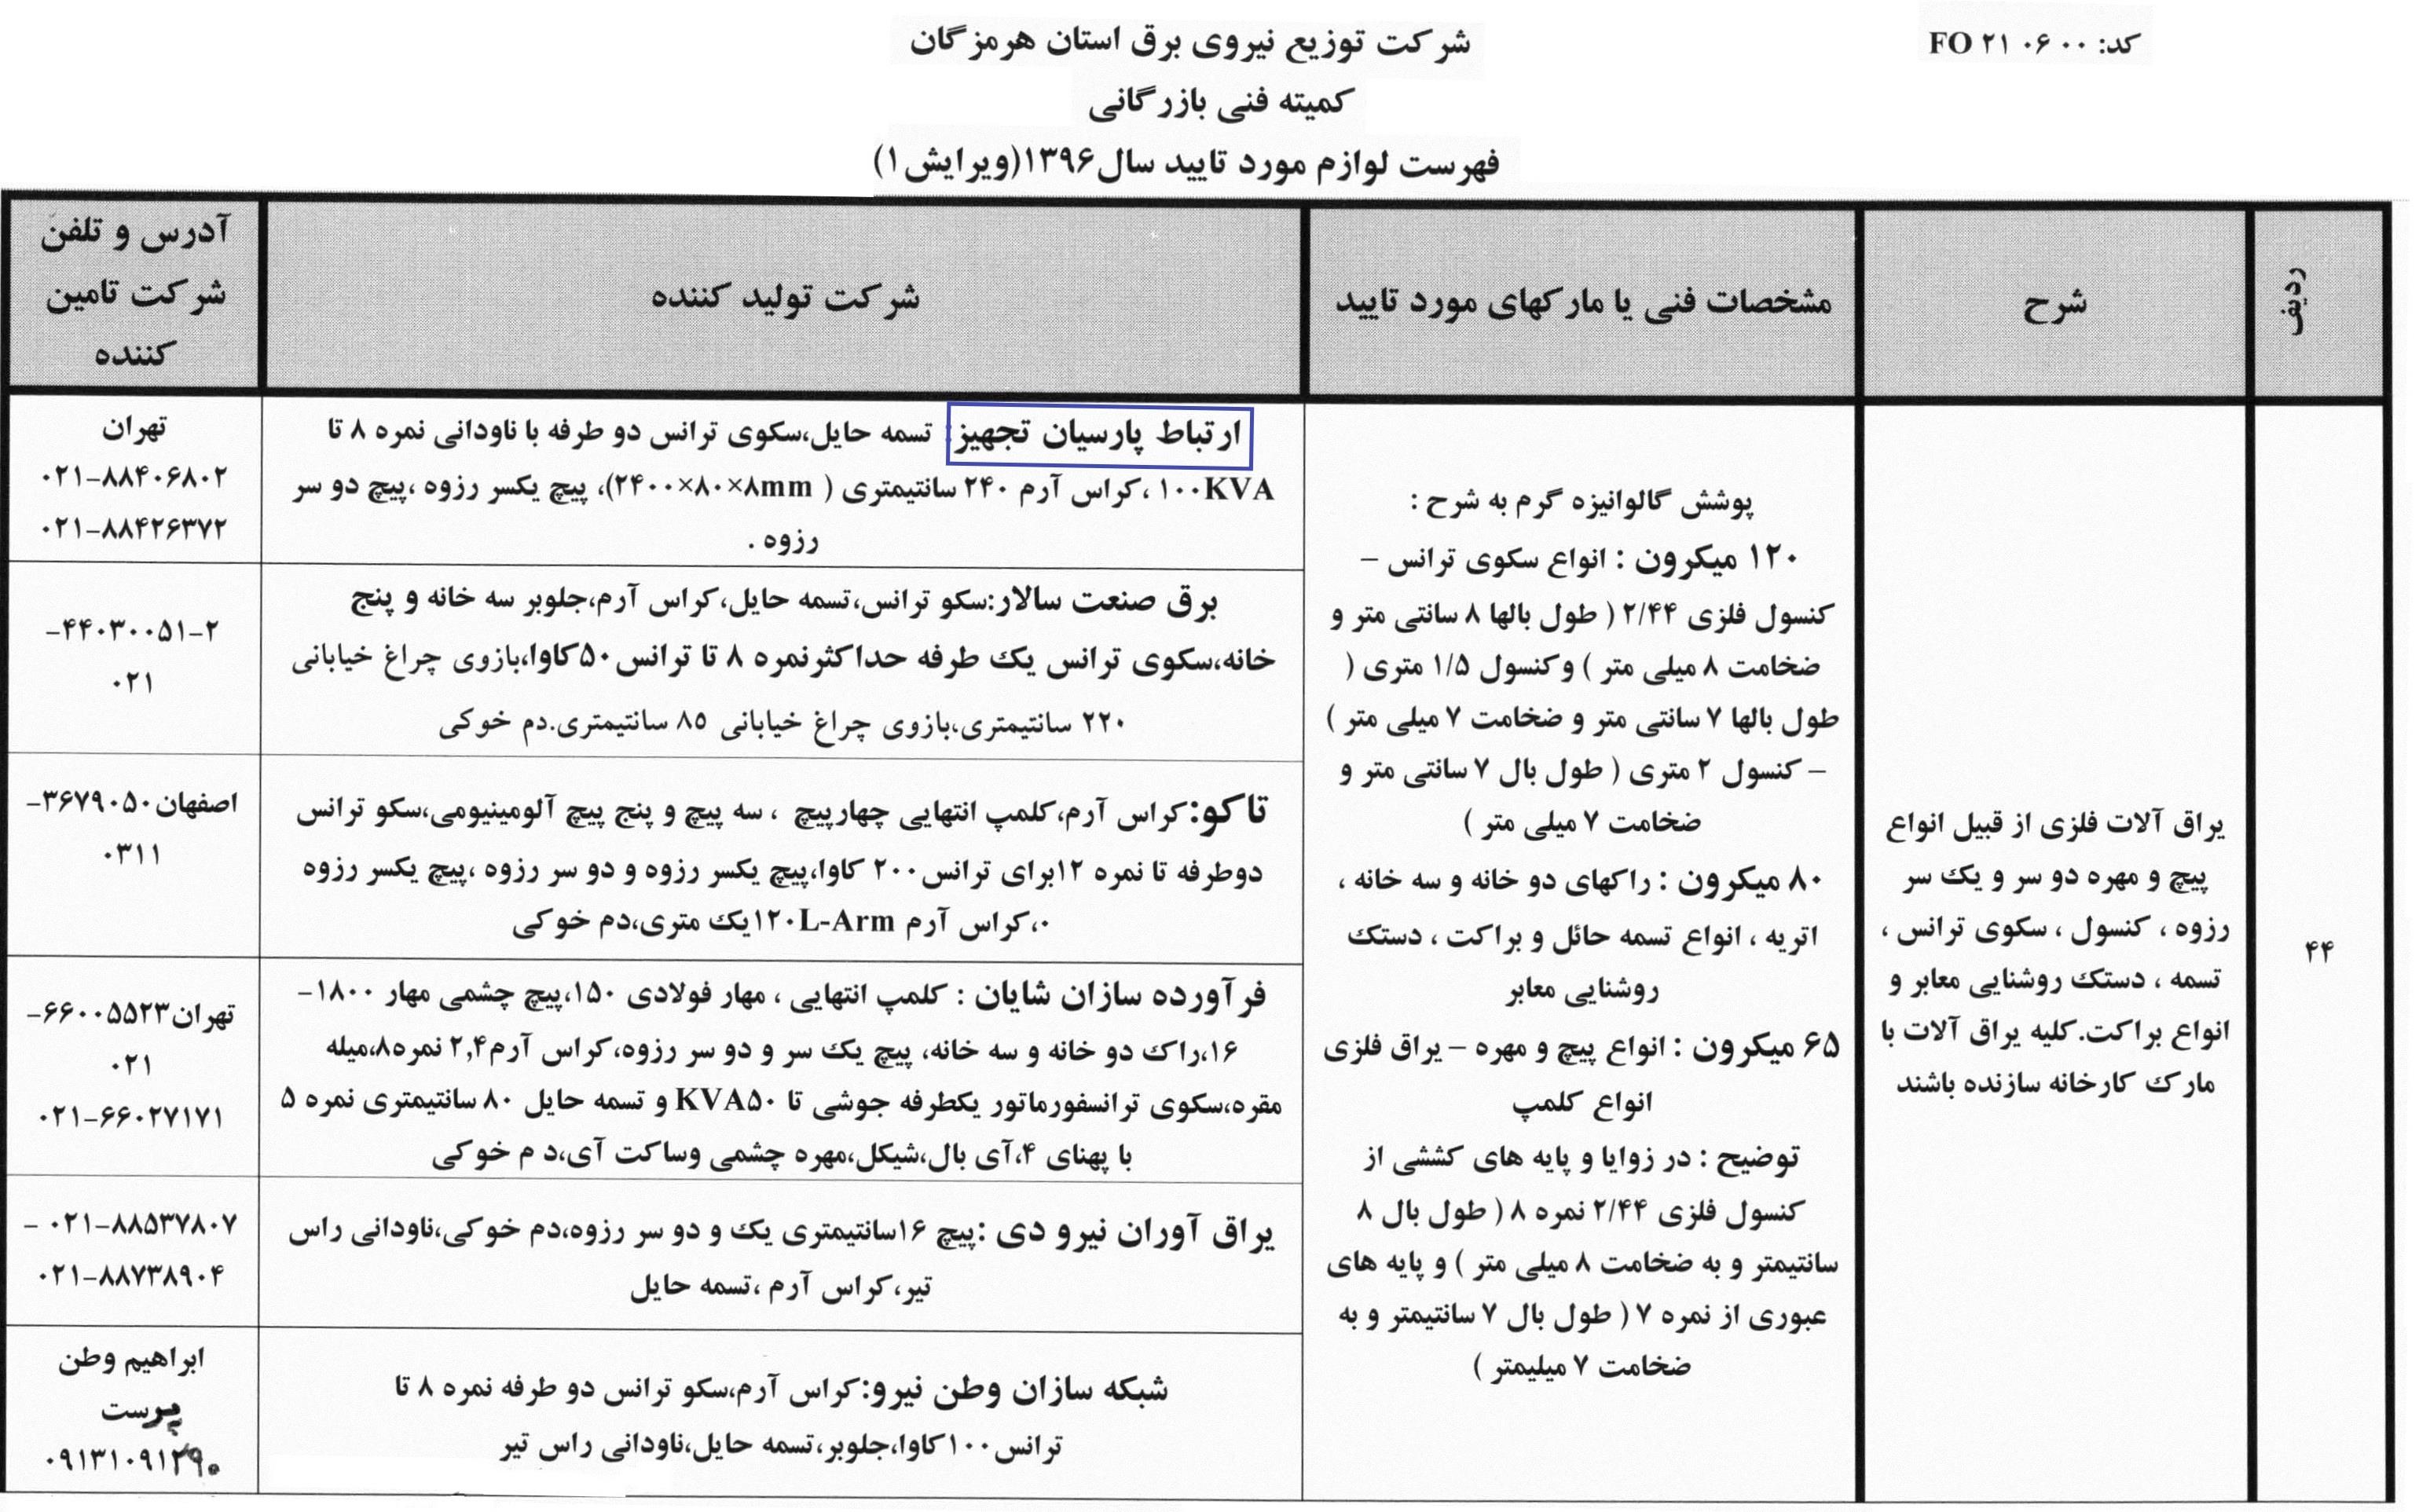 کد: FO ۲۱ ۰۶ ۰۰
شرکت توزیع نیروی برق استان هرمزگان
کمیته فنی بازرگانی
فهرست لوازم مورد تایید سال۱۳۹۶(ویرایش۱)
ردیف
شرح
مشخصات فنی یا مارکهای مورد تایید
شرکت تولید کننده
آدرس و تلفن
شرکت تامین
کننده
۴۴
یراق آلات فلزی از قبیل انواع
پیچ و مهره دو سر و یک سر
رزوه ، کنسول ، سکوی ترانس ،
تسمه ، دستک روشنایی معابر و
انواع براکت.کلیه یراق آلات با
مارک کارخانه سازنده باشند
پوشش گالوانیزه گرم به شرح :
۱۲۰ میکرون : انواع سکوی ترانس –
کنسول فلزی ۲/۴۴ ( طول بالها ۸ سانتی متر و
ضخامت ۸ میلی متر ) وکنسول ۱/۵ متری (
طول بالها ۷ سانتی متر و ضخامت ۷ میلی متر )
– کنسول ۲ متری ( طول بال ۷ سانتی متر و
ضخامت ۷ میلی متر )
۸۰ میکرون : راکهای دو خانه و سه خانه ،
اتریه ، انواع تسمه حائل و براکت ، دستک
روشنایی معابر
۶۵ میکرون : انواع پیچ و مهره – یراق فلزی
انواع کلمپ
توضیح : در زوایا و پایه های کششی از
کنسول فلزی ۲/۴۴ نمره ۸ ( طول بال ۸
سانتیمتر و به ضخامت ۸ میلی متر ) و پایه های
عبوری از نمره ۷ ( طول بال ۷ سانتیمتر و به
ضخامت ۷ میلیمتر )
ارتباط پارسیان تجهیز: تسمه حایل،سکوی ترانس دو طرفه با ناودانی نمره ۸ تا
۱۰۰KVA ،کراس آرم ۲۴۰ سانتیمتری ( ۲۴۰۰×۸۰×۸mm)، پیچ یکسر رزوه ،پیچ دو سر
رزوه .
تهران
۰۲۱–۸۸۴۰۶۸۰۲
۰۲۱–۸۸۴۲۶۳۷۲
برق صنعت سالار:سکو ترانس،تسمه حایل،کراس آرم،جلوبر سه خانه و پنج
خانه،سکوی ترانس یک طرفه حداکثرنمره ۸ تا ترانس۵۰کاوا،بازوی چراغ خیابانی
۲۲۰ سانتیمتری،بازوی چراغ خیابانی ۸۵ سانتیمتری.دم خوکی
–۴۴۰۳۰۰۵۱–۲
۰۲۱
تاکو:کراس آرم،کلمپ انتهایی چهارپیچ ، سه پیچ و پنج پیچ آلومینیومی،سکو ترانس
دوطرفه تا نمره ۱۲برای ترانس۲۰۰ کاوا،پیچ یکسر رزوه و دو سر رزوه ،پیچ یکسر رزوه
۰،کراس آرم ۱۲۰L-Armیک متری،دم خوکی
اصفهان۳۶۷۹۰۵۰–
۰۳۱۱
فرآورده سازان شایان : کلمپ انتهایی ، مهار فولادی ۱۵۰،پیچ چشمی مهار ۱۸۰۰–
۱۶،راک دو خانه و سه خانه، پیچ یک سر و دو سر رزوه،کراس آرم۲,۴ نمره۸،میله
مقره،سکوی ترانسفورماتور یکطرفه جوشی تا KVA۵۰ و تسمه حایل ۸۰ سانتیمتری نمره ۵
با پهنای ۴،آی بال،شیکل،مهره چشمی وساکت آی،د م خوکی
تهران۶۶۰۰۵۵۲۳–
۰۲۱
۰۲۱–۶۶۰۲۷۱۷۱
یراق آوران نیرو دی :پیچ ۱۶سانتیمتری یک و دو سر رزوه،دم خوکی،ناودانی راس
تیر،کراس آرم ،تسمه حایل
– ۰۲۱–۸۸۵۳۷۸۰۷
۰۲۱–۸۸۷۳۸۹۰۴
شبکه سازان وطن نیرو:کراس آرم،سکو ترانس دو طرفه نمره ۸ تا
ترانس۱۰۰کاوا،جلوبر،تسمه حایل،ناودانی راس تیر
ابراهیم وطن
پرست